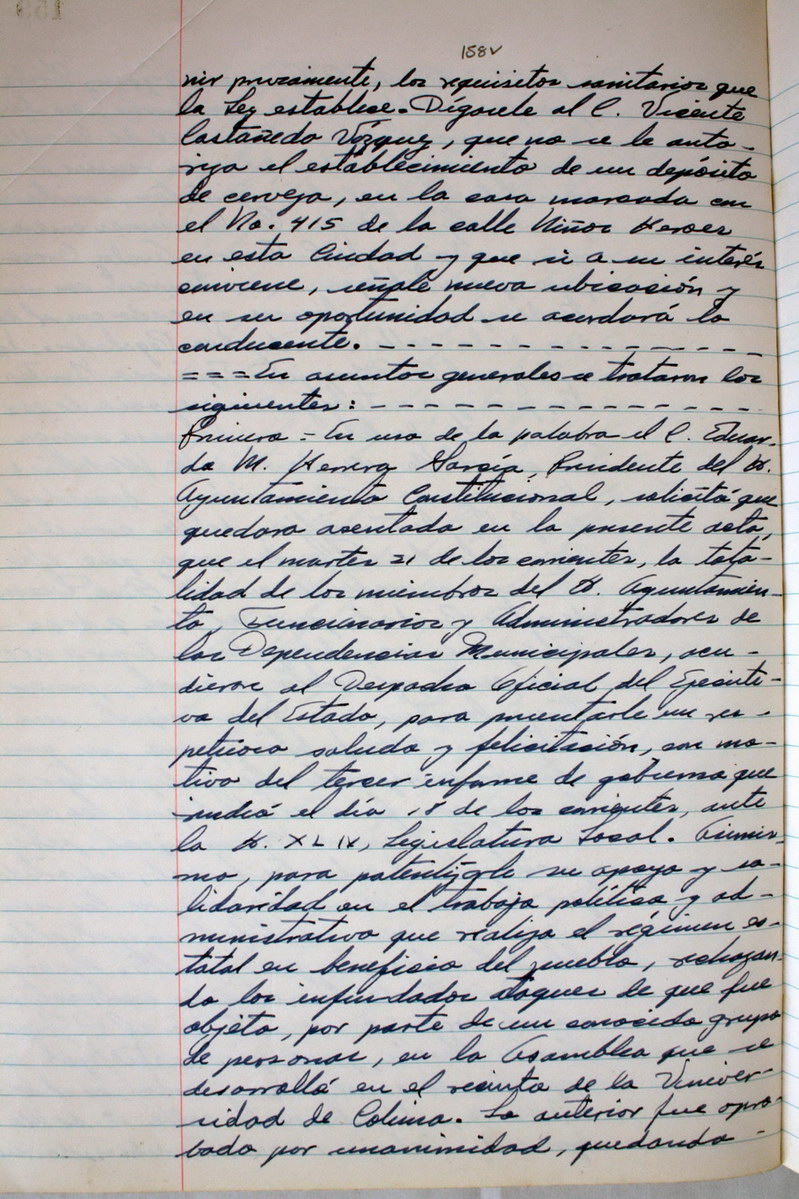 158v
nir previamente, los requisitos sanitarios que
la Ley establece. Dígasele al C. Vicente
Castañeda Vázquez, que no se le auto-
riza el establecimiento de un depósito
de cerveza, en la casa marcada con
el No. 415 de la calle Niños Heroes
en esta Ciudad y que si a su interés
conviene, señale nueva ubicación y
en su oportunidad se acordará lo
conducente. - - - - - - - - - - - - - - -
= = = En asuntos generales se trataron los
siguientes: - - - - - - - - - - - - - - -
Primero = En uso de la palabra el C. Eduar-
do M. Herrera García, Presidente del H.
Ayuntamiento Constitucional, solicitó que
quedara asentado en la presente acta,
que el martes 21 de los corrientes, la tota-
lidad de los miembros del H. Ayuntamien-
to, Funcionarios y Administradores de
las Dependencias Municipales, acu-
dieron al Despacho Oficial del Ejecuti-
vo del Estado, para presentarle un res-
petuoso saludo y felicitación, con mo-
tivo del tercer informe de gobierno que
rindió el día 18 de los corrientes, ante
la H. XLIV, Legislatura Local. Asimis-
mo, para patentizarle su apoyo y so-
lidaridad en el trabajo político y ad-
ministrativo que realiza el régimen es-
tatal en beneficio del pueblo, rechazan-
do los infundados ataques de que fue
objeto, por parte de un conocido grupo
de personas, en la Asamblea que se
desarrolló en el recinto de la Univer-
sidad de Colima. Lo anterior fue apro-
bado por unanimidad, quedando -